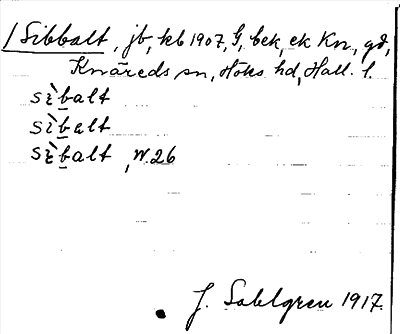 /Sibbalt, jb, kb 1907, G, bek, ek Kn, gd,
Knäreds sn, Höks hd, Hall. l.
sìbalt
sìbalt
sìbalt, W. 26
J. Sahlgren 1917.